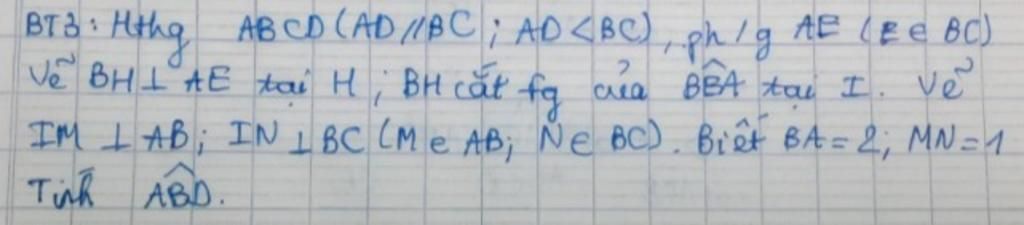 BT3: Hthg ABCD (AD//BC; AD<BC), ph/g AE (E∈BC)
Vẽ BH⊥AE tại H; BH cắt fg của BÊA tại I. Vẽ
IM ⊥ AB; IN⊥BC (M∈AB; N∈BC). Biết BA=2; MN=1
Tính ABD.